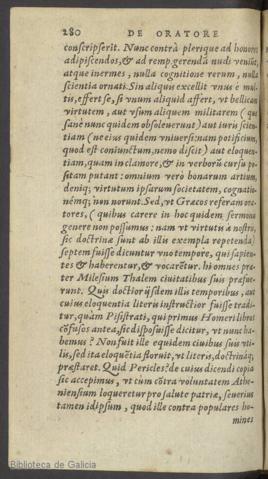 280 DE ORATORE
conscripserit. Nunc contrà plerique ad honores
adipiscendos, & ad remp. gerendã nudi veniũt,
atque inermes, nulla cognitione rerum, nulla
scientia ornati. Sin aliquis excellit vnus è mul-
tis, effert se, si vnum aliquid affert, vt bellicam
virtutem, aut vsum aliquem militarem (quæ
sanè nunc quidem obsoleuerunt) aut iuris scien-
tiam (ne eius quidem vniuersi: nam põtificium,
quod est coniunctum, nemo discit) aut eloquen-
tiam, quam in clamore, & in verborũ cursu po-
sitam putant: omnium verò bonarum artium,
deniq; virtutum ipsarum societatem, cognatio-
némq; non norunt. Sed, vt Græcos referam ora-
tores, (quibus carere in hoc quidem sermonis
genere non possumus: nam vt virtutis à nostris,
sic doctrinæ sunt ab illis exempla repetenda)
septem fuisse dicuntur vno tempore, qui sapien-
tes & haberentur, & vocarẽtur. hi omnes præ-
ter Milesium Thalem ciuitatibus suis præfue-
runt. Quis doctior ijsdem illis temporibus, aut
cuius eloquentia literis instructior fuisse tradi-
tur, quàm Pisistrati, qui primus Homeri libros
cõfusos antea, sic disposuisse dicitur, vt nunc ha-
bemus? Non fuit ille equidem ciuibus suis vti-
lis, sed ita eloquẽtia floruit, vt literis, doctrináq;
præstaret. Quid Pericles? de cuius dicendi copia
sic accepimus, vt cùm cõtra voluntatem Athe-
niensium loqueretur pro salute patriæ, seuerius
tamen id ipsum, quod ille contra populares ho-
mines
Biblioteca de Galicia